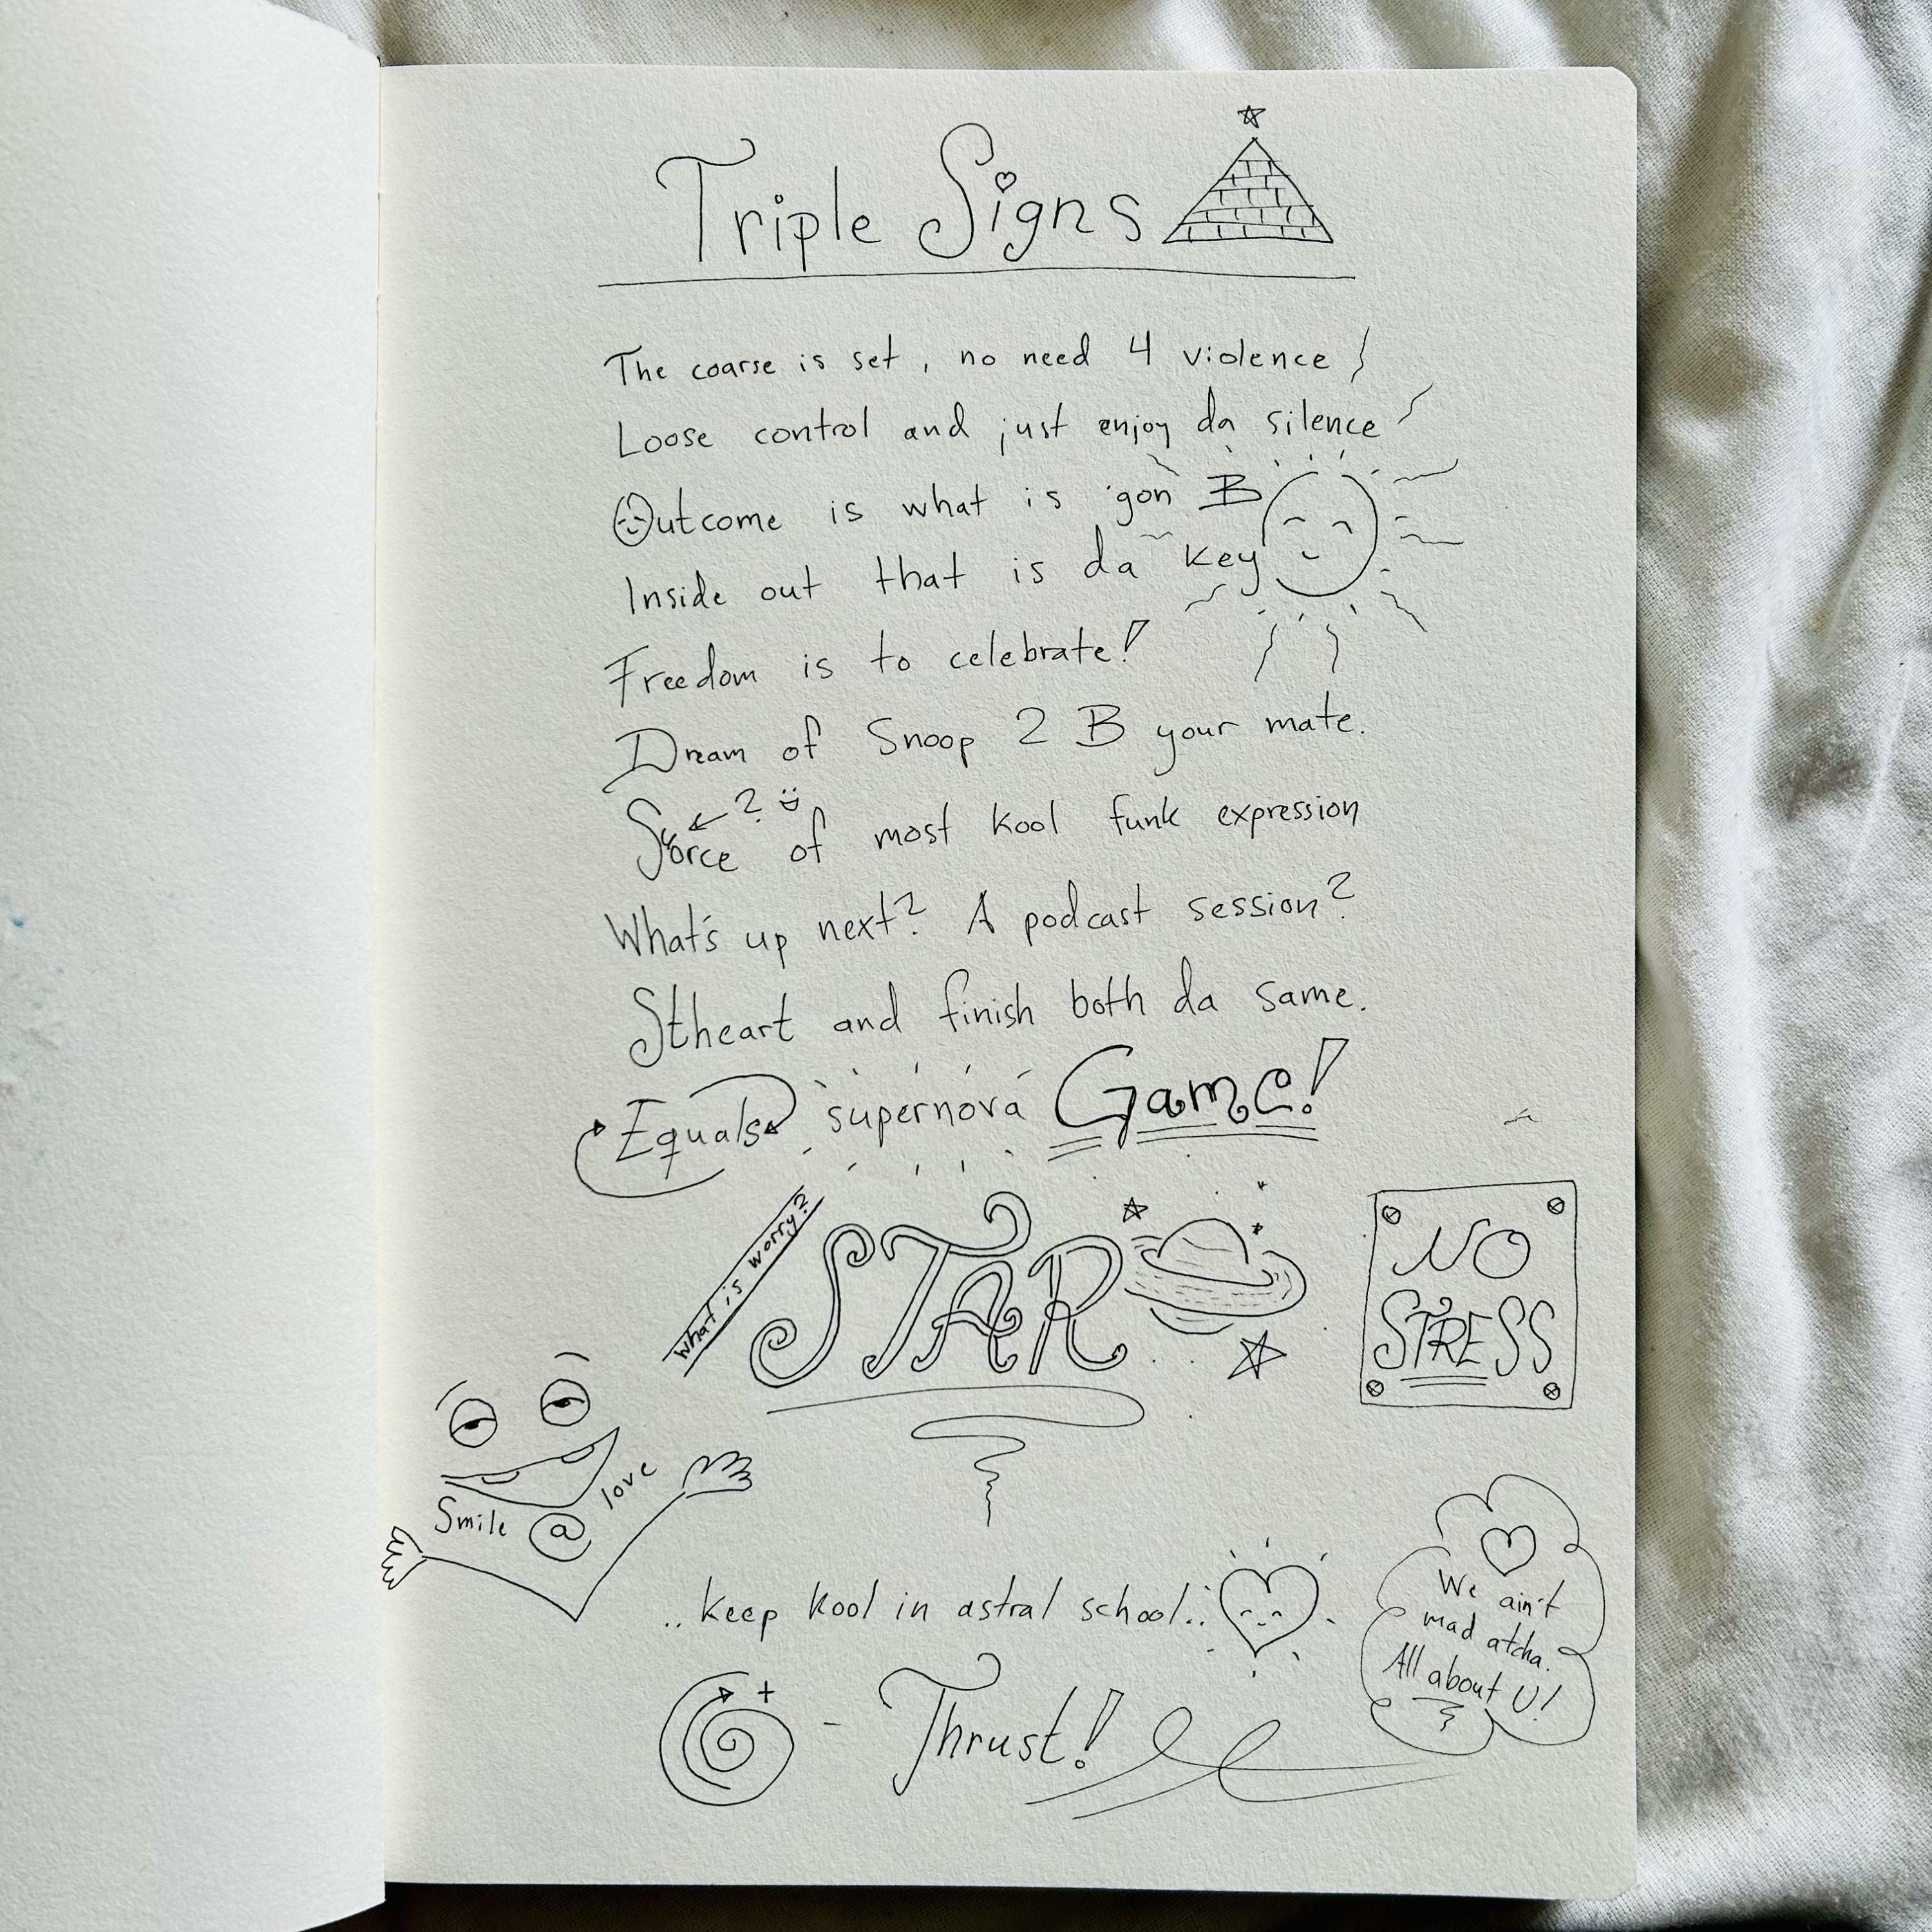 Triple Signs
The coarse is set, no need 4 violence!
Loose control and just enjoy da silence!
Outcome is what is 'gon B
Inside out that is da key
Freedom is to celebrate!
Dream of Snoop 2 B your mate.
?
Sorce of most kool funk expression
What's up next? A podcast session?
Stheart and finish both da same.
Equals supernova Game!
what is worry?
STAR
NO
STRESS
Smile @ love
..keep kool in astral school..
We ain't
mad atcha.
All about U!
+
- Thrust!